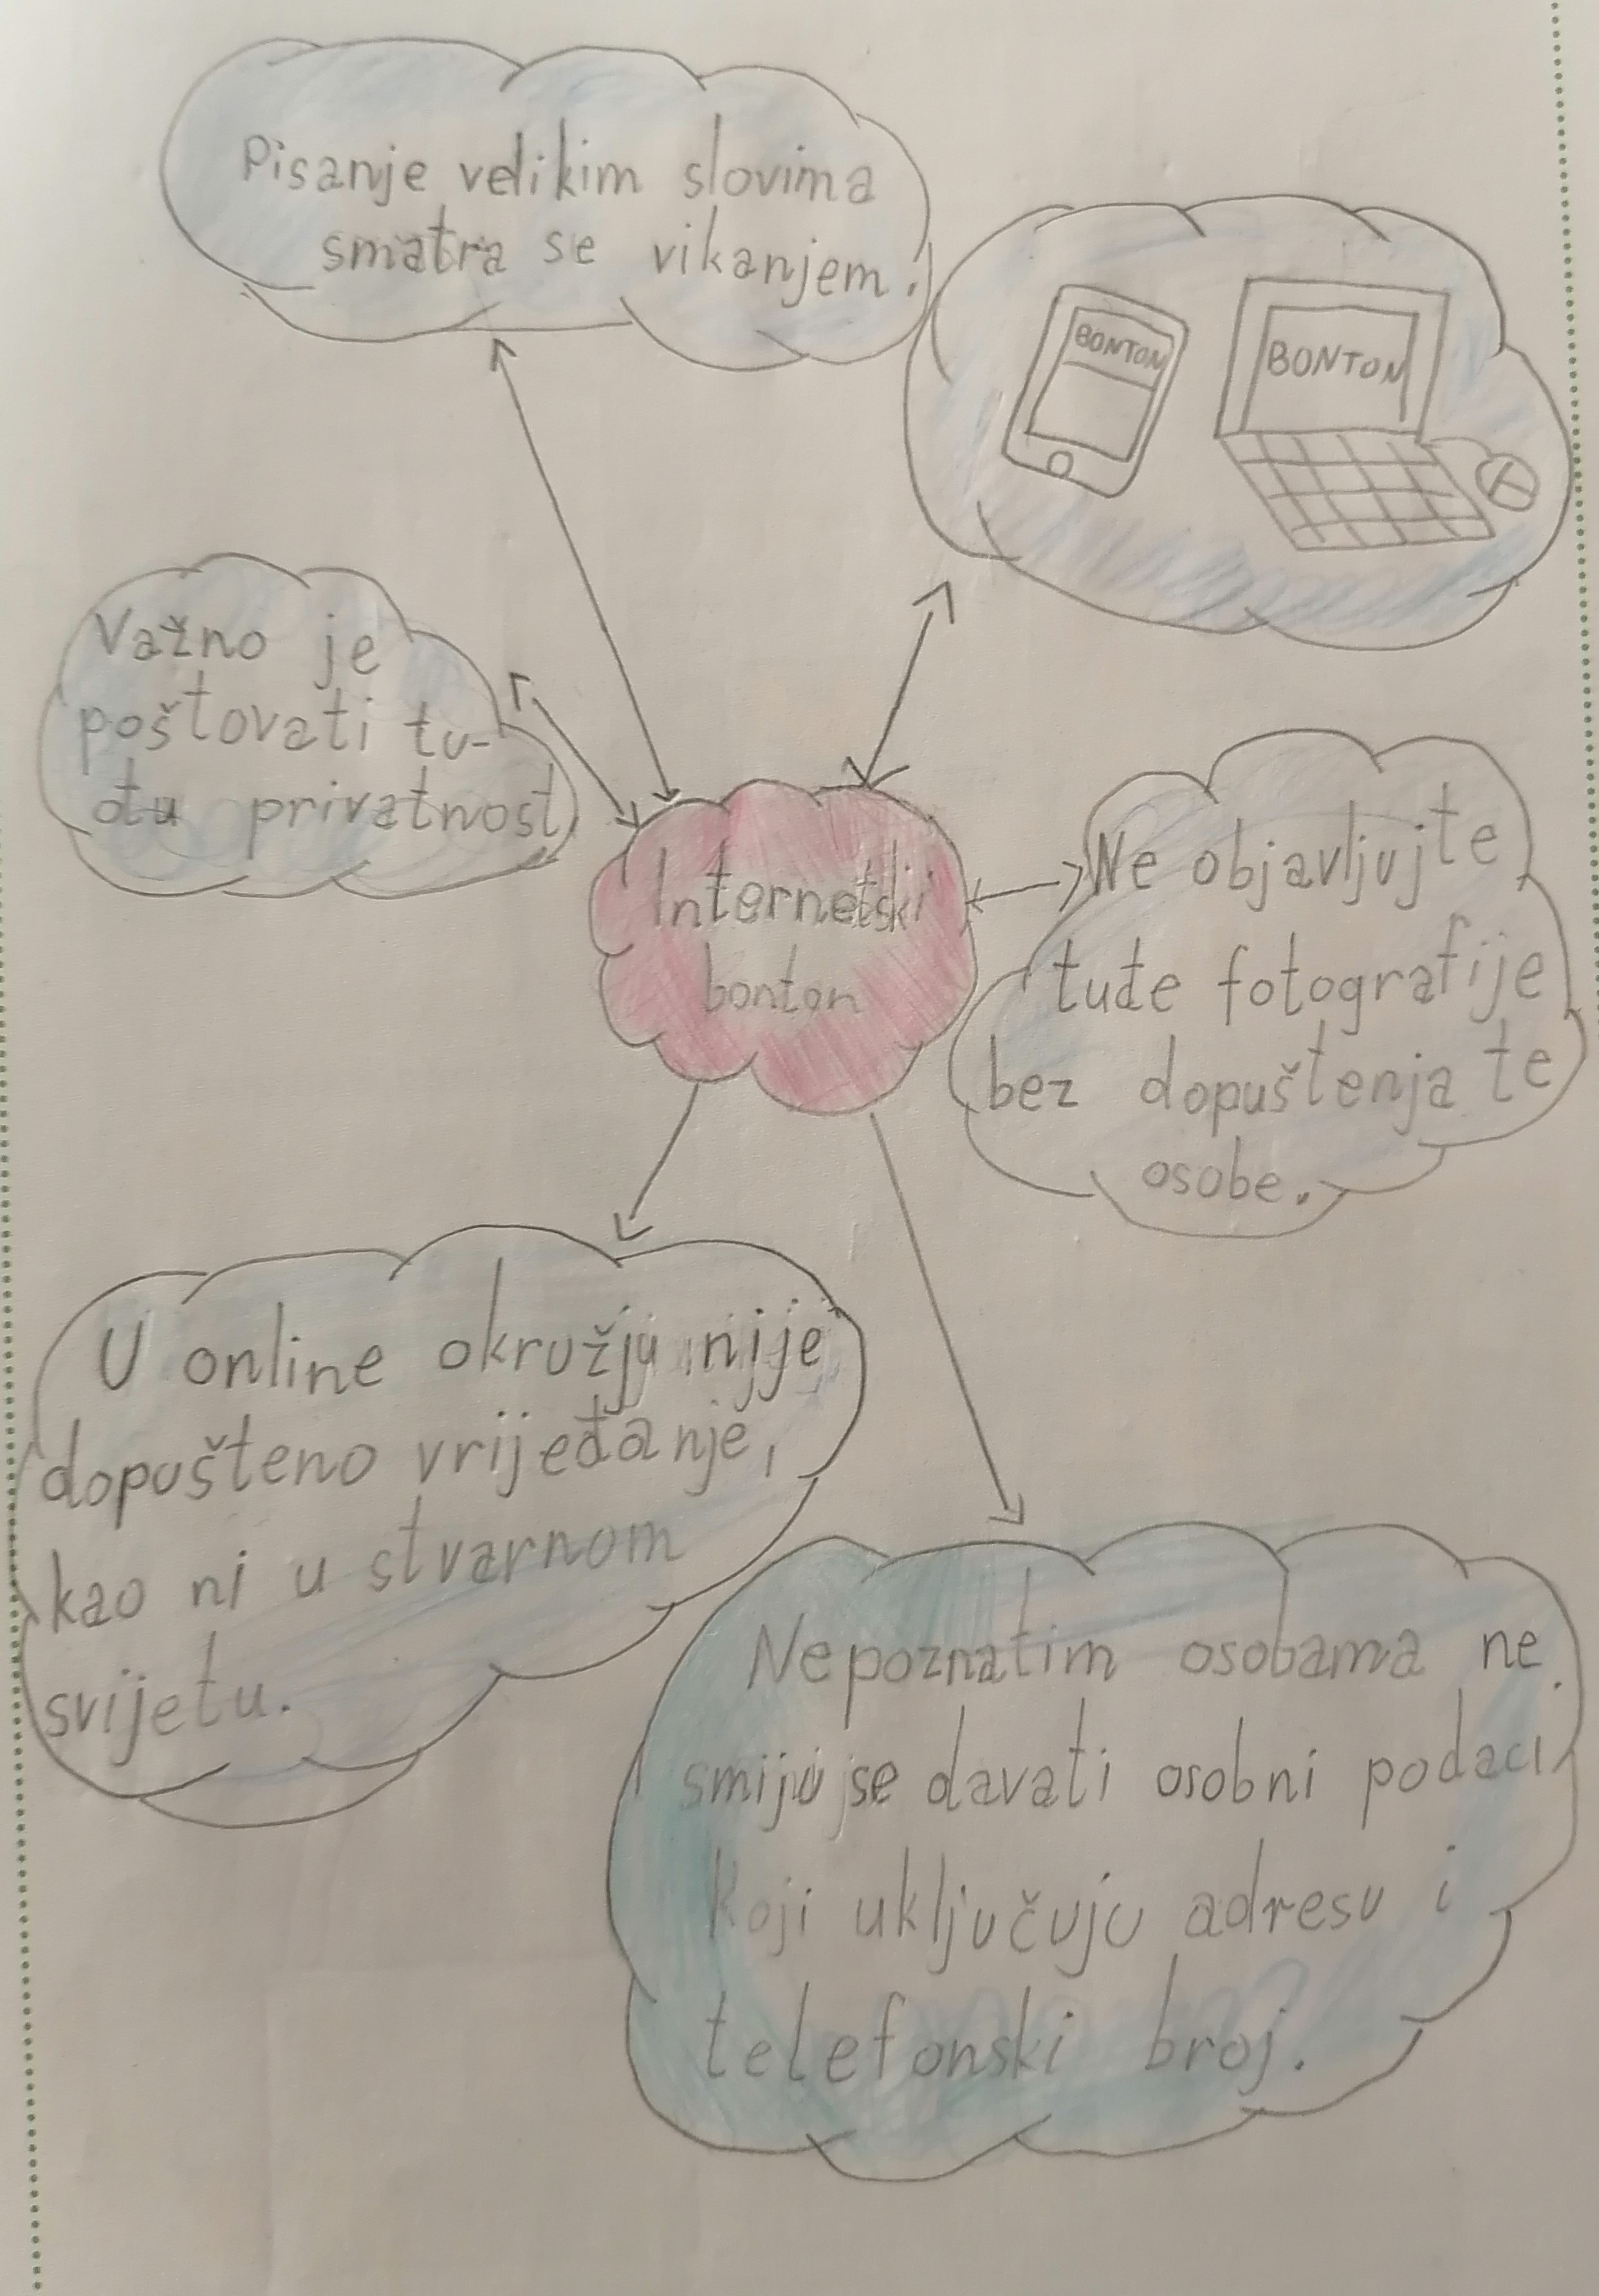 Pisanje velikim slovima
smatra se vikanjem.
BONTON
BONTON
Važno je
poštovati tu-
đu privatnost
Internetski
bonton
Ne objavljujte
tuđe fotografije
bez dopuštenja te
osobe.
U online okružju nije
dopušteno vrijeđanje,
kao ni u stvarnom
svijetu.
Nepoznatim osobama ne
smiju se davati osobni podaci
koji uključuju adresu i
telefonski broj.